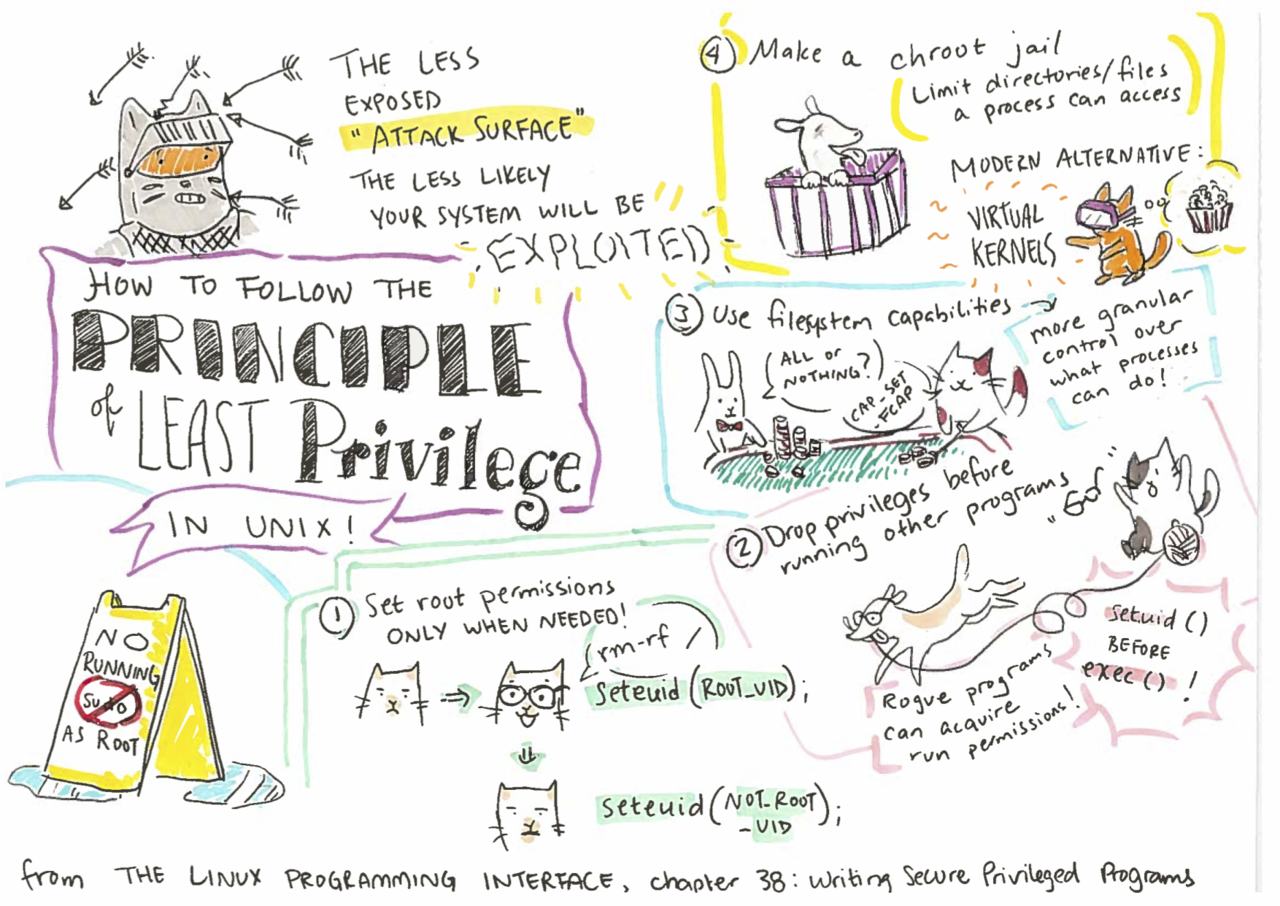 THE LESS
EXPOSED
"ATTACK SURFACE"
THE LESS LIKELY
YOUR SYSTEM WILL BE
EXPLOITED
HOW TO FOLLOW THE
PRINCIPLE
of LEAST Privilege
IN UNIX!
NO
RUNNING
Sudo
AS ROOT
① Set root permissions
ONLY WHEN NEEDED!
rm-rf /
seteuid (ROOT_UID);
seteuid (NOT_ROOT
_UID);
② Drop privileges before
running other programs
Rogue programs
can acquire
run permissions!
setuid ()
BEFORE
exec () !
③ Use filesystem capabilities →
more granular
control over
what processes
can do!
ALL or
NOTHING?
CAP_SET
FCAP
④ Make a chroot jail
Limit directories/files
a process can access
MODERN ALTERNATIVE:
VIRTUAL
KERNELS
from THE LINUX PROGRAMMING INTERFACE, chapter 38: Writing Secure Privileged Programs